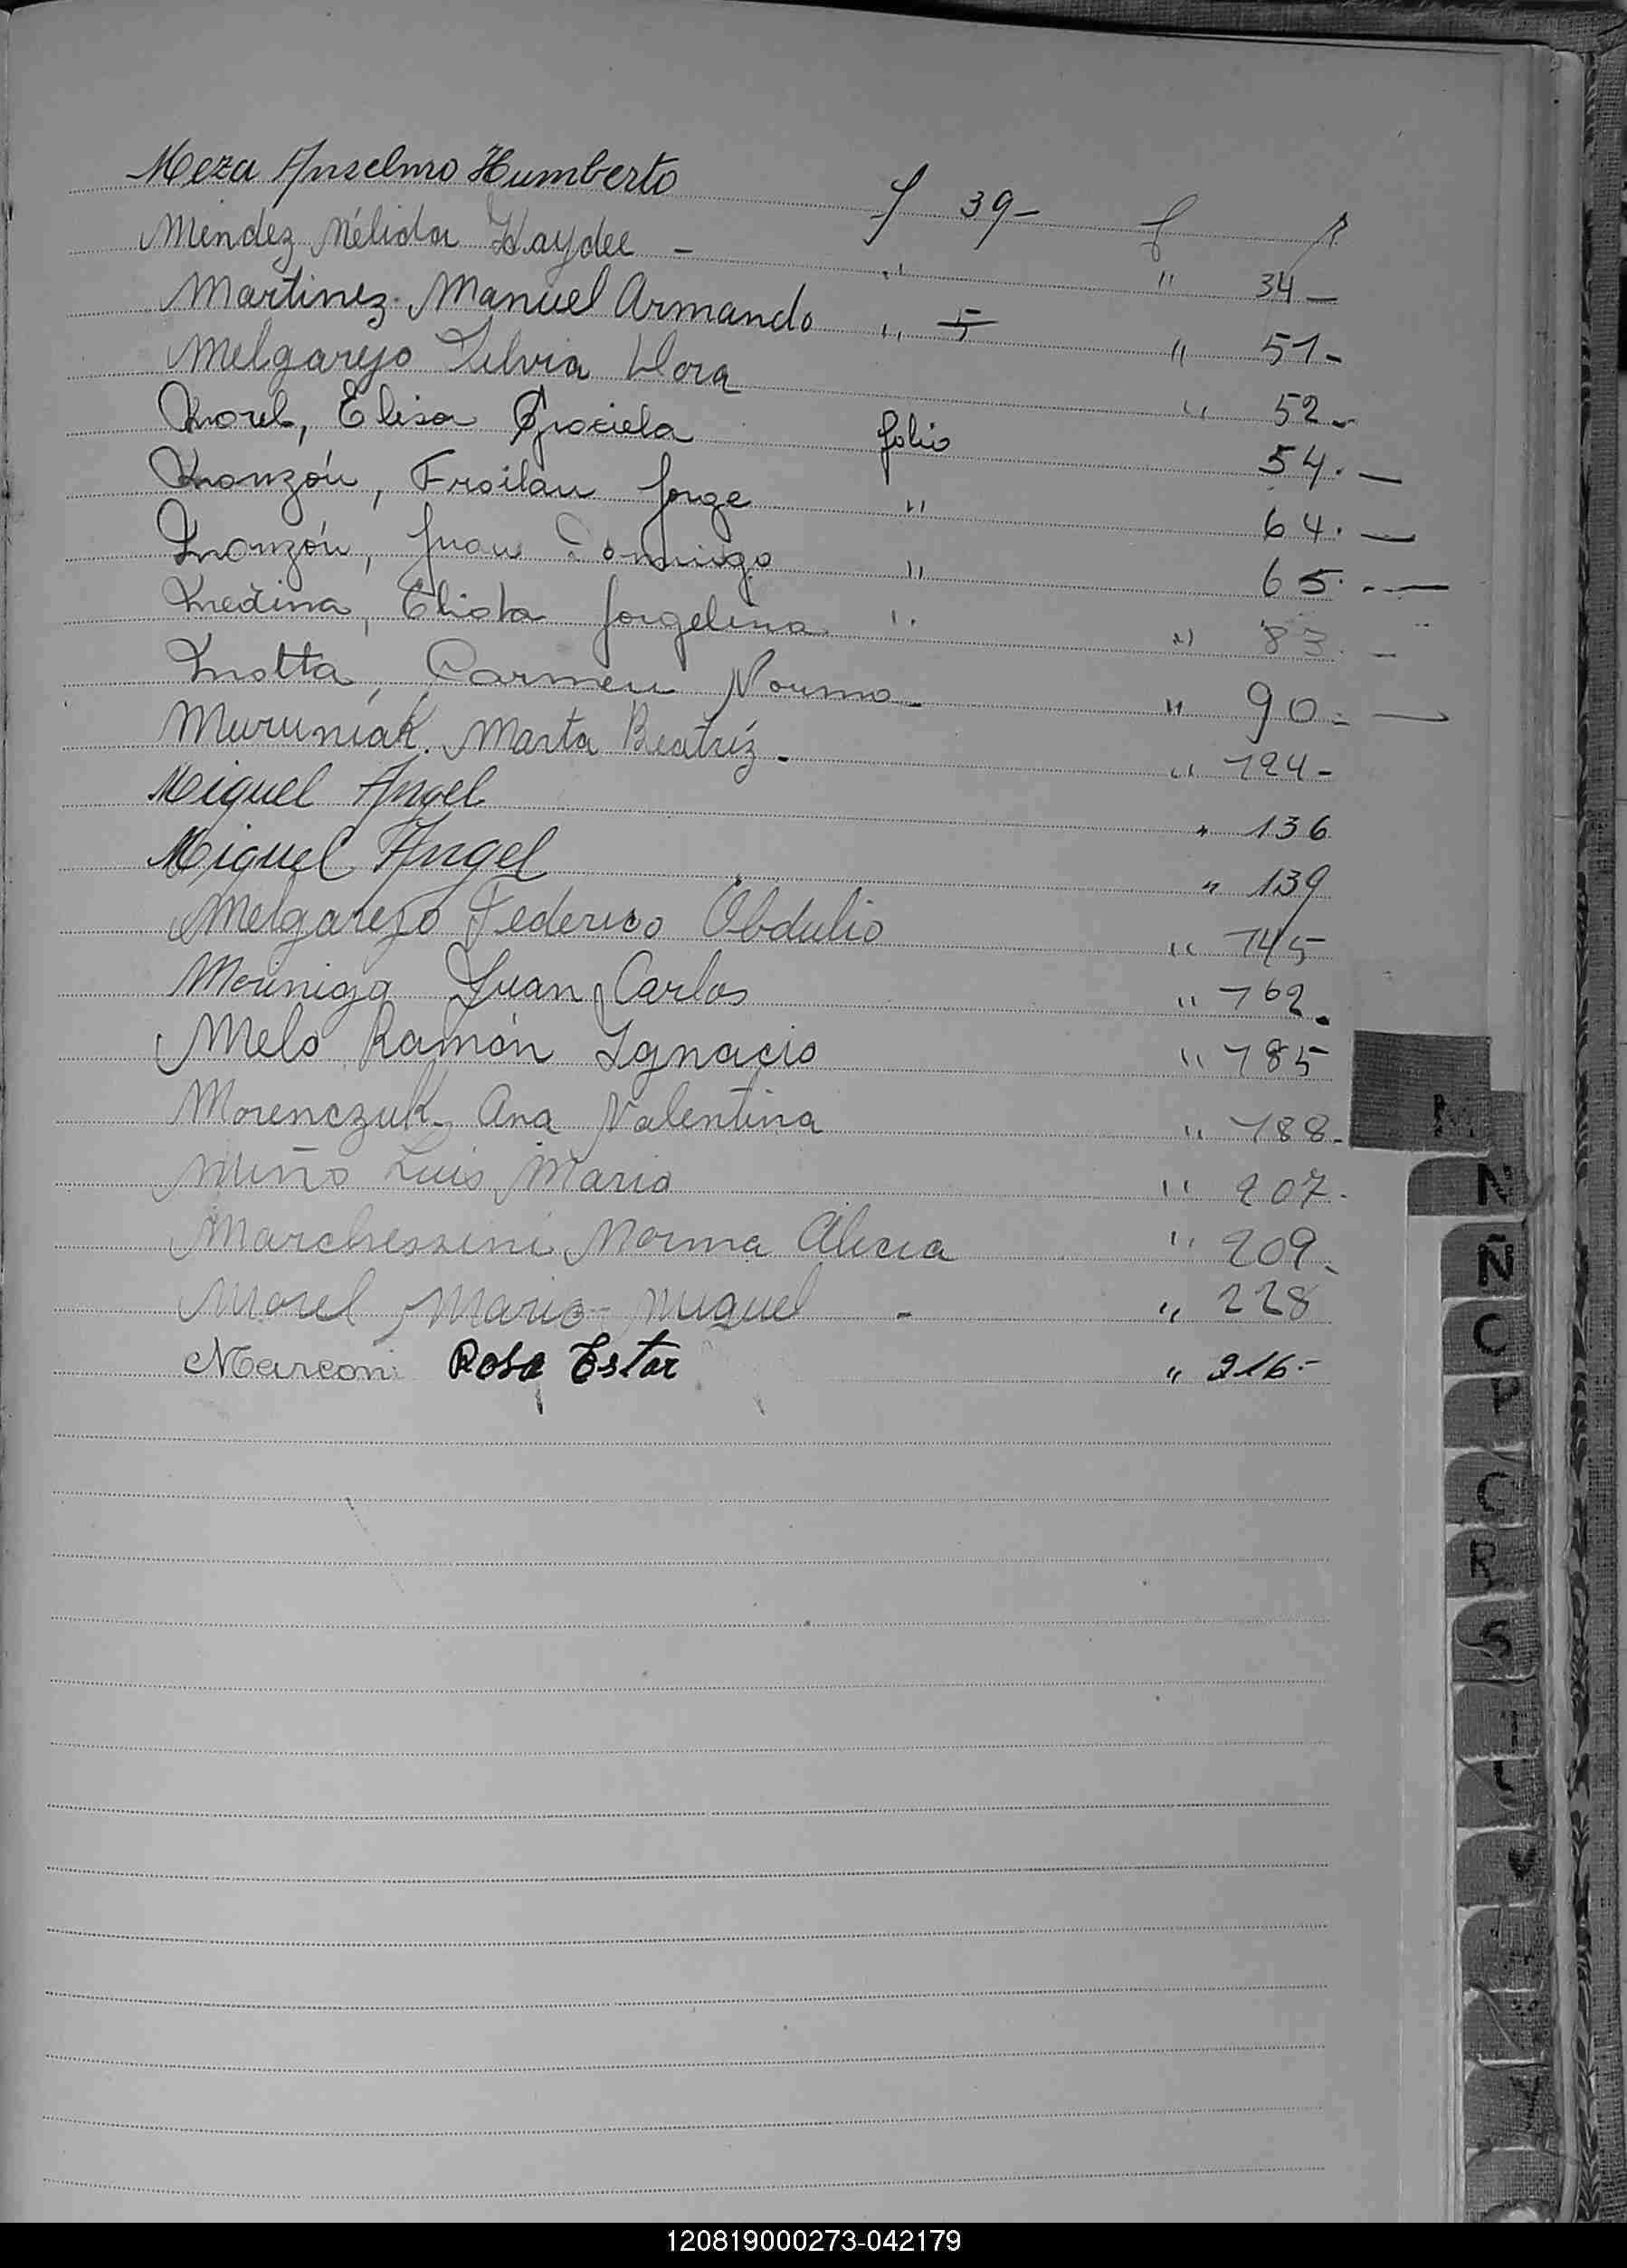 Meza Anselmo Humberto f 39- f
Méndez Nélida Haydee - " " 34-
Martinez Manuel Armando " 5 " 51-
Melgarejo Silvia Dora " 52-
Morel, Elisa Graciela folio 54.-
Monzón, Froilan Jorge " 64.-
Monzón, Juan Domingo " 65.-
Medina, Jorgelina " " 83.-
Motta, Carmen Norma - " 90-
Muruniak. Marta Beatríz - " 124-
Miguel Angel " 136
Miguel Angel " 139
Melgarejo Federico Obdulio " 145
Moriniga Juan Carlos " 162.
Melo Ramón Ygnacio " 185
Morenczuk Ana Valentina " 188-
Miño Luis Mario " 207-
Marchessini Norma Alicia " 209
Morel Mario Miguel - " 228
Marconi Rosa Ester " 216-
M
N
Ñ
O
P
Q
R
S
120819000273-042179